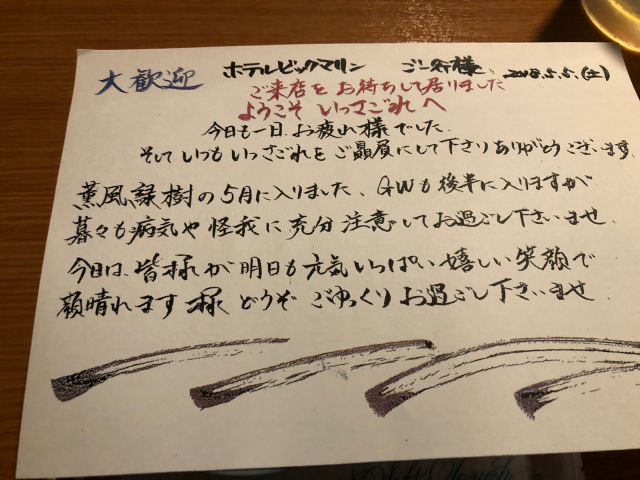 大歓迎 ホテルビックマリン ご一行様 2018.5.5.(土)
ご来店をお待ちして居りました
ようこそ いっさごれへ
今日も一日 お疲れ様でした.
そして いつも いっさごれを ご贔屓にして下さり ありがとうございます.
薫風緑樹の5月に入りました、GWも後半に入りますが
暮々も病気や怪我に充分注意してお過ごし下さいませ.
今日は、皆様が明日も元気いっぱい嬉しい笑顔で
顔晴れます様 どうぞ ごゆっくり お過ごし下さいませ.